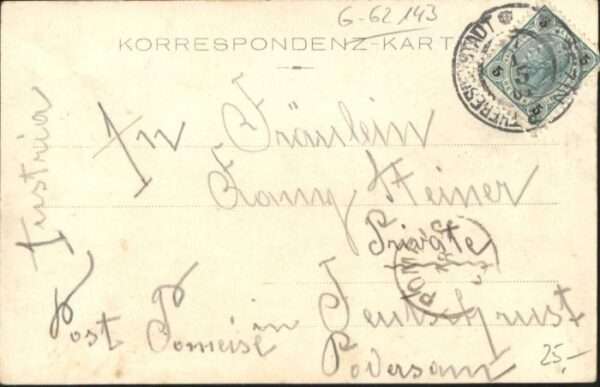 G-62143
KORRESPONDENZ-KART
THERESIENSTADT
5 5 5
Austria
An Fräulein
Fanny Steiner
Private
POM
Post Pomeisl in
Podersam
25,-